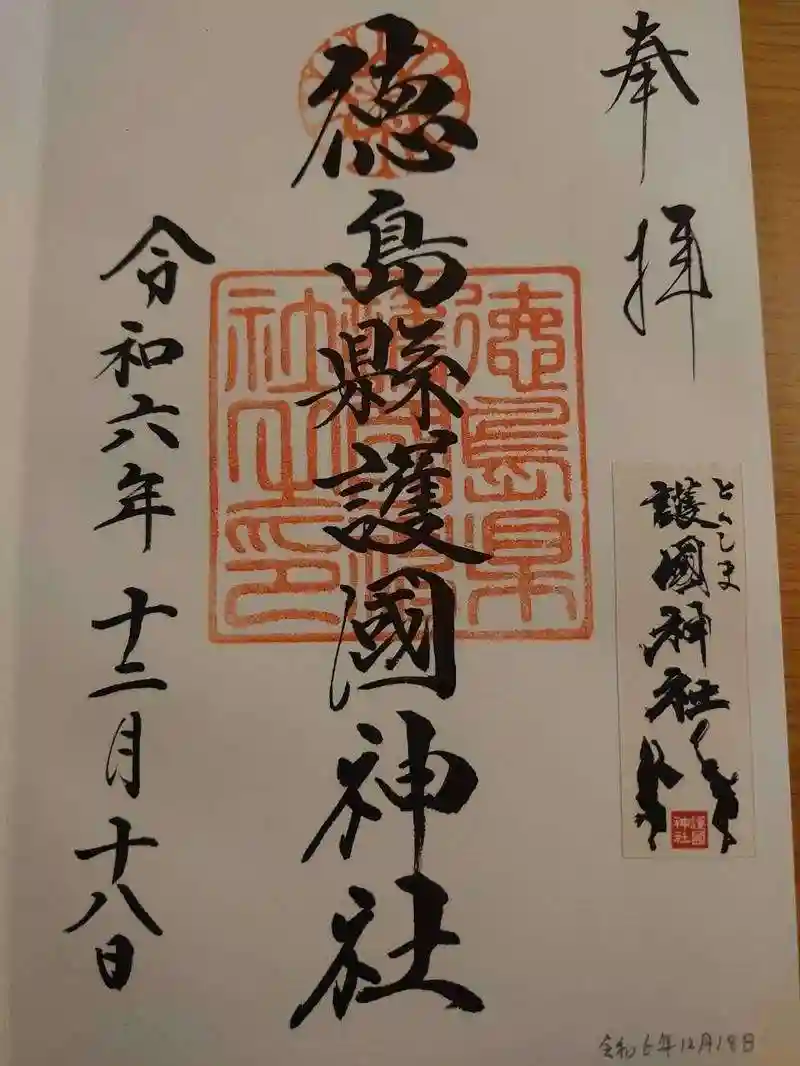 奉拝
とくしま
護國神社
護國
神社
徳島縣護國神社
徳島県
護國神
社之印
令和六年十二月十八日
令和6年12月18日